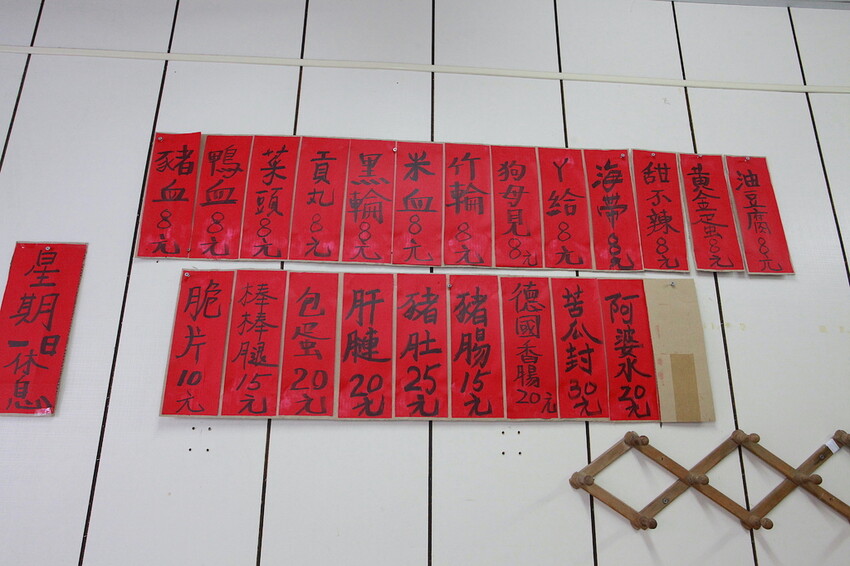 豬血8元
鴨血8元
菜頭8元
貢丸8元
黑輪8元
米血8元
竹輪8元
狗母見8元
丫給8元
海帶8元
甜不辣8元
黃金蛋8元
油豆腐8元
脆片10元
棒棒腿15元
包蛋20元
肝腱20元
豬肚25元
豬腸15元
德國香腸20元
苦瓜封30元
阿婆水20元
星期日一休息